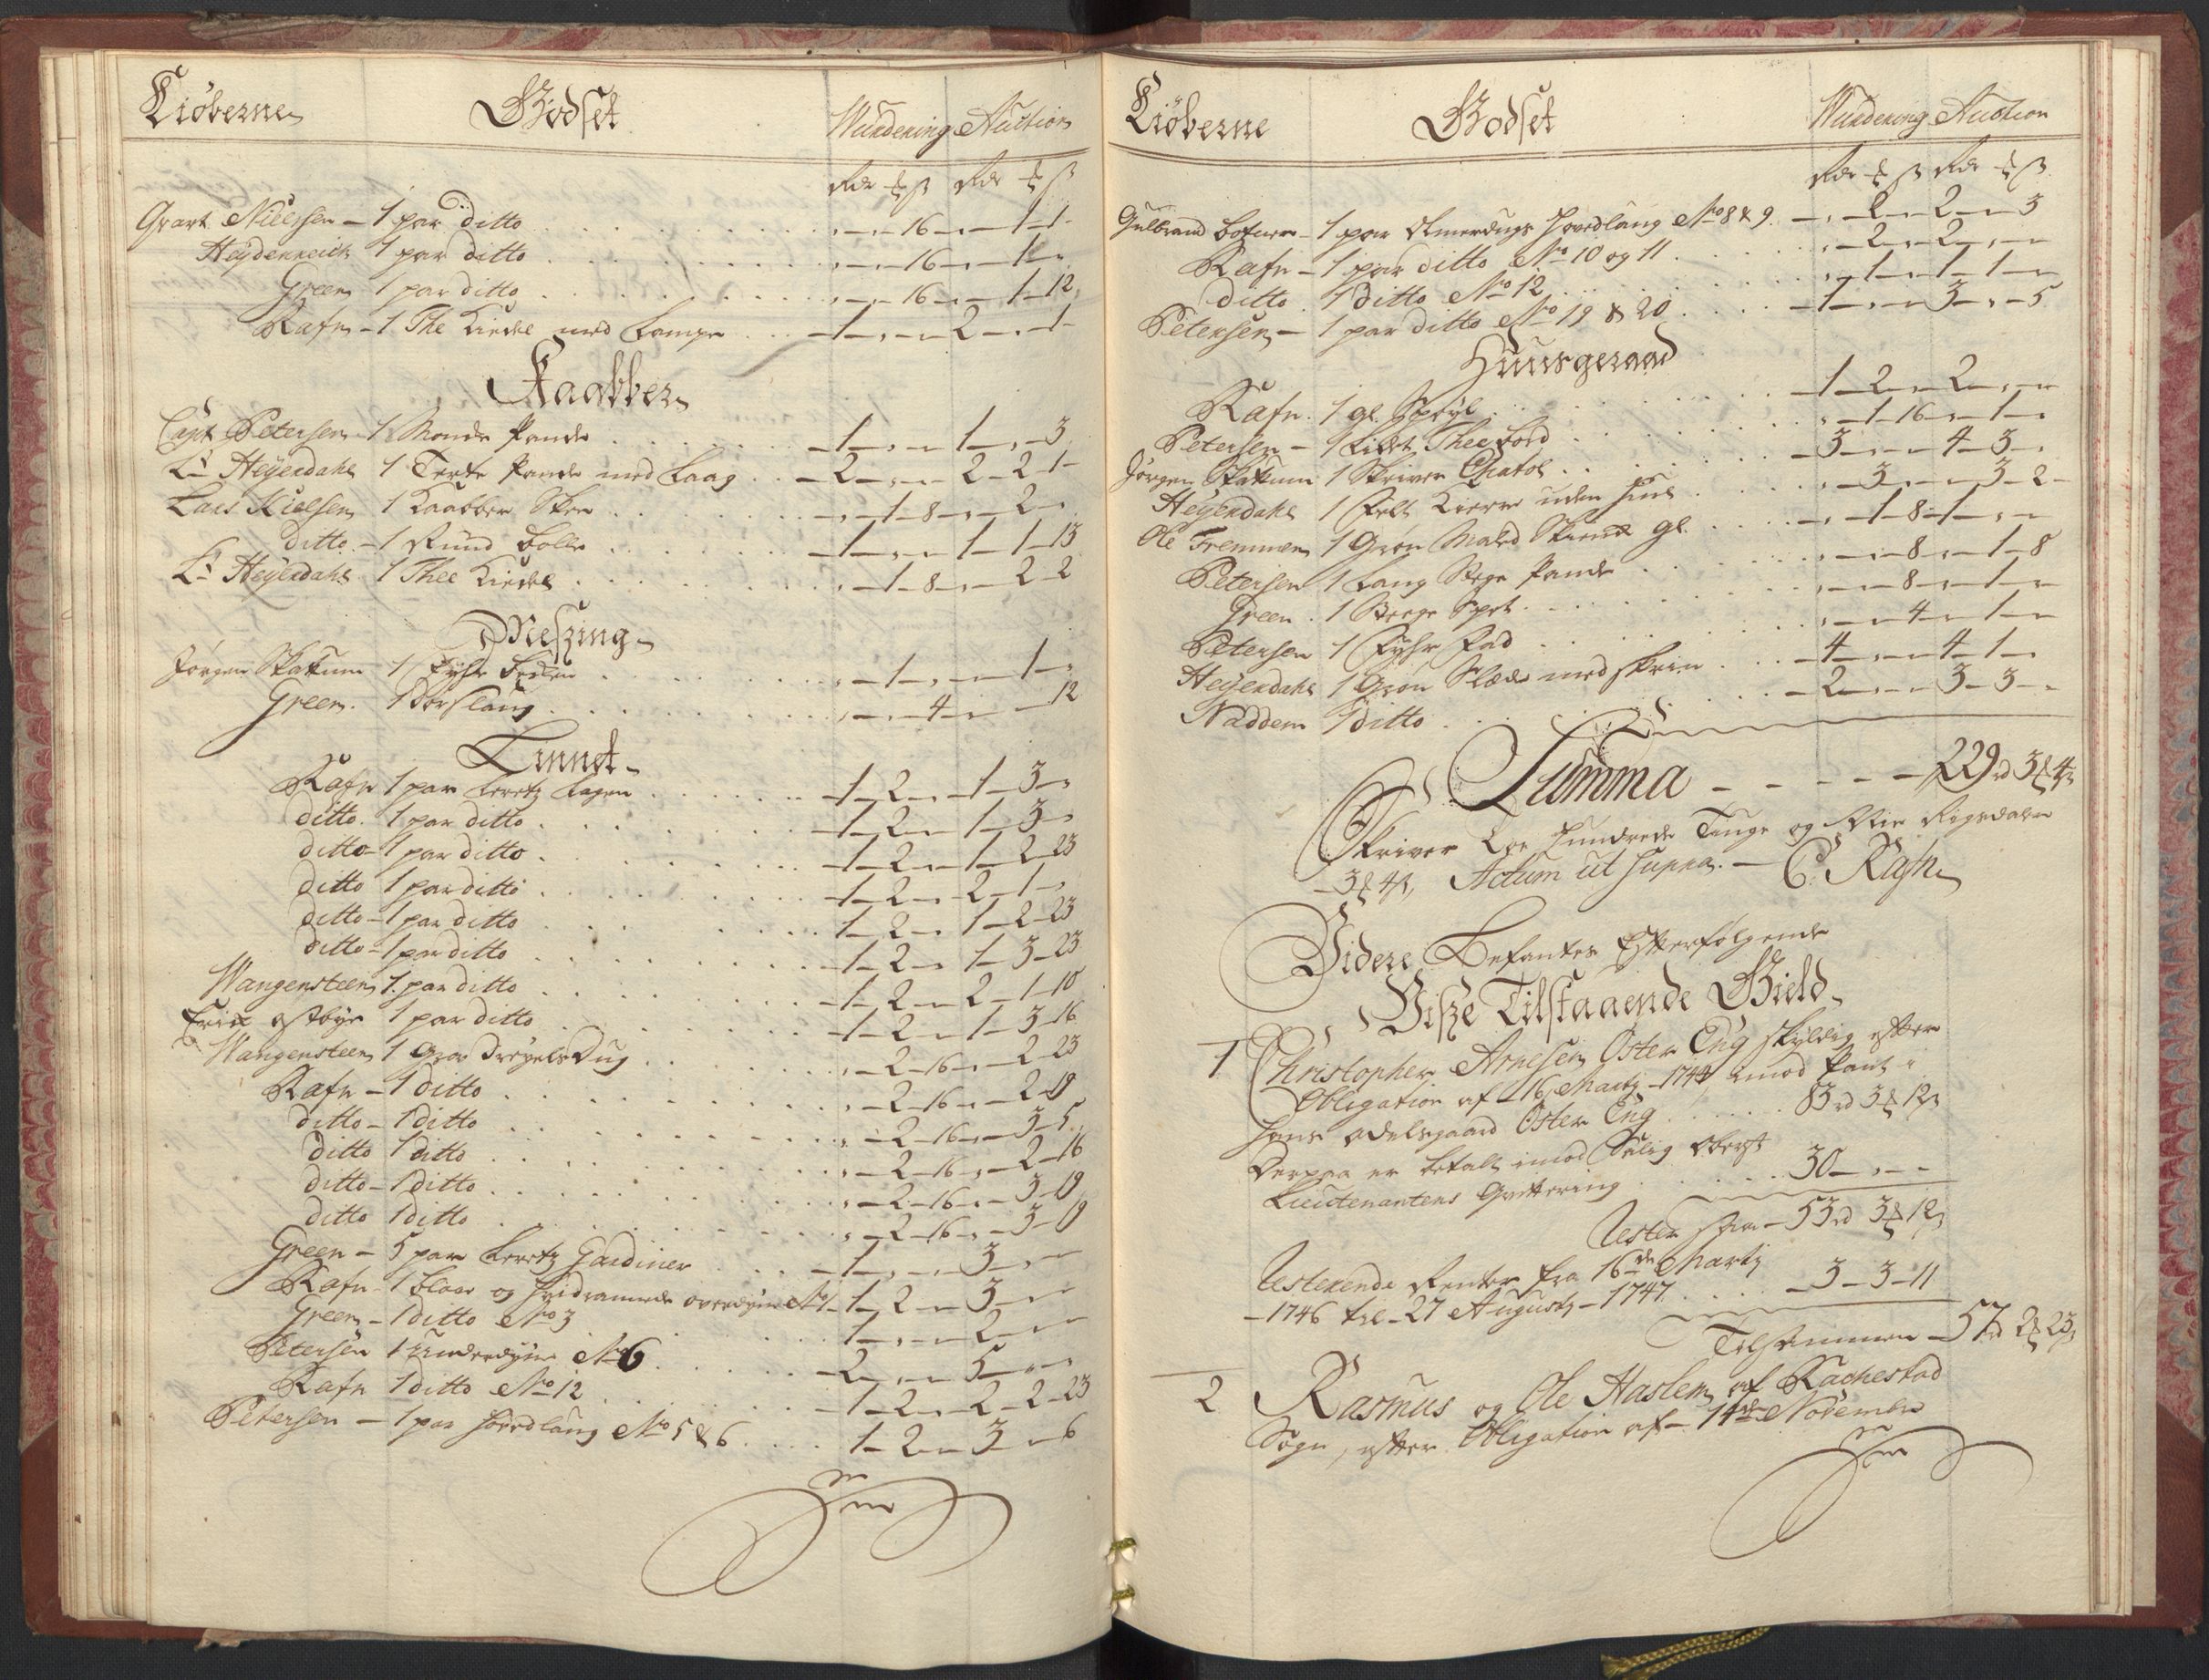 Kiøberne Godset Wurdering Auction
Rdr ß Rdr ß
Gvart Nielssen - 1 par ditto - - 16 - - 1 - 1 -
Heydenreich 1 par ditto - - 16 - - 1 -
Green 1 par ditto - - 16 - - 1 - 12
Rafn - 1 The Kiedel med Lampe - 1 - - - 2 - - 1 -
Kaabber
Capt Petersen - 1 Monde Pande - 1 - - - 1 - - 3
Lt Heyerdahl 1 Terte Pande med Laag - 2 - - - 2 - 2 - 1 -
Lars Nielsen 1 Kaabber Skee - 1 - 8 - - 2 -
ditto - 1 Rund Bolle - 1 - - - 1 - 1 - 13
Lt Heyerdahl 1 Thee Kiedel - 1 - 8 - - 2 - 2
Meszing
Jørgen Skattum 1 Fyhr Beken - 1 - - - 1 -
Green 1 Dørslaug - - 4 - - 12
Linnet
Rafn 1 par Leretz Lagen - 1 - 2 - - 1 - 3 -
ditto 1 par ditto - 1 - 2 - - 1 - 3 -
ditto - 1 par ditto - 1 - 2 - - 1 - 2 - 23
ditto 1 par ditto - 1 - 2 - - 2 - 1 -
ditto - 1 par ditto - 1 - 2 - - 1 - 2 - 23
ditto - 1 par ditto - 1 - 2 - - 1 - 3 - 23
Wangensteen 1 par ditto - 1 - 2 - - 2 - 1 - 10
Erich Østbye 1 par ditto - 1 - 2 - - 1 - 3 - 16
Wangensteen 1 Grov Dreyels Dug - 2 - 16 - - 2 - 23
Rafn - 1 ditto - 2 - 16 - - 2 - 19
ditto - 1 ditto - 2 - 16 - - 3 - 5
ditto 1 ditto - 2 - 16 - - 2 - 16
ditto - 1 ditto - 2 - 16 - - 3 - 19
ditto 1 ditto - 2 - 16 - - 3 - 19
Green - 5 par Leretz Gardiner - 1 - - - 3 - -
Rafn - 1 blaae og Hvidrannede overdyne No 1 - 1 - 2 - - 3 - -
Green - 1 ditto No 3 1 - - - 2 - -
Petersen 1 Underdyne No 6 - 2 - - - 5 - -
Rafn 1 ditto No 12 - 1 - 2 - - 2 - 2 - 23
Petersen - 1 par Hovedlaug No 5 & 6 1 - 2 - - 3 - - 6
Kiøberne Godset Wurdering Auction
Rdr ß Rdr ß
Gulbrand Bofner - 1 par Olmerdugs Hovedlaug No 8 & 9 - - 2 - 2 - - 3
Rafn - 1 par ditto No 10 og 11 - 2 - - 2 - -
ditto 1 ditto No 12 - 1 - - 1 - 1 -
Petersen - 1 par ditto No 19 & 20 - 1 - - - 3 - - 5
Huusgeraad
Rafn 1 gl. Speyl - 1 - 2 - - 2 - - -
Petersen - 1 Lidet Thee Bord - 1 - 16 - - 1 -
Jørgen Skattum 1 Skriver Chatol - 3 - - - 4 - 3 -
Heyerdahl 1 Felt Kierre uden Hiul - 3 - - - 3 - 2 -
Ole Tremmen 1 Grøn Malet Skrin gl. - 1 - 8 - 1 - -
Petersen 1 Lang Stege Pande - - 8 - - 1 - 8
Green 1 Stege Spet - - 8 - - 1 -
Petersen 1 Fyhr Fad - - 4 - - 1 -
Heyerdahl 1 Grøn Slæde med skrin - 4 - - - 4 - 1 -
Naddem 1 ditto - 2 - - - 3 - 3 -
Summa - - - - - 229 rd 3 4 ß
Skriver Toe Hundrede Tiuge og Nie Rigsdaler
- 3 4 ß, Actum ut supra. - C: Rafn
Videre Befantes Efterfølgende
Visze Tilstaaende Gield
1 Christopher Arnesen Øster Eng skyldig efter
Obligation af 16 Martj - 1744 imod Pant i
hans odelsgaard Øster Eng 83 rd 3 12 ß
Derpaa er betalt imod Salig Oberst
Lieutenantens Qvittering 30 - - -
Rester - 53 rd 3 12 ß
Resterende Renter fra 16de Martj
- 1746 til - 27 Augusti - 1747 - 3 - 3 - 11
Tilsammen - 57 rd 2 23 ß
2 Rasmus og Ole Haslem af Rachestad
Sogn, efter Obligation af - 14de Novembr